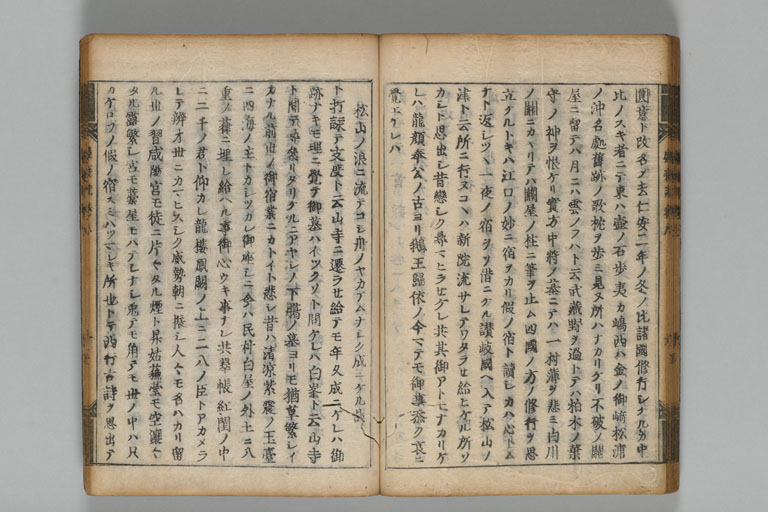 圓意ト改名ノ去仁安二年ノ冬ノ比諸國修行シケル分中
比ノスキ者ニテ東ハ壺ノ石歩夷カ嶋西ハ金ノ御崎松浦
ノ沖名処舊跡ノ歌枕ヲ歩ミ見ヌ所ハナカリケリ不破ノ關
屋ニ留テハ月ニハ雲ノフハト云武蔵野ヲ過トテハ柏木ノ葉
守ノ神ヲ恨ケリ實方中將ノ墓ニテハ一村薄ヲ悲ミ白川
ノ關ニカヽリテハ關屋ノ柱ニ筆ヲ止ム四國ノ方ノ修行ヲ思
立ケルトキハ江口ノ妙ニ宿ヲカリ假ノ宿ト讀シカハ心トム
ナト返シツヽ一夜ノ宿ヲソ借ニケル讃岐國ヘ入テ松山ノ
津ト云所ニ行ヌコヽハ新院流サレテワタラセ給ヒケル所ソ
カシト思出シ昔戀シク尋ネヒラセケレ共其御アトモナカリケ
レハ龍顔奉公ノ古ヨリ鵝王歸依ノ今マテモ御事忝ク哀ニ
覺ヱケレハ
松山ノ浪ニ流テコシ舟ノヤカテムナシク成ニケル哉
ト打詠テ支度ト云山寺ニ遷ラセ給テモ年久成ニケレハ御
跡ナキモ理ニ覺テ御墓ハイツクソト問ケレハ白峯ト云山寺
ト聞テ尋參リタリケルニアヤシノ下臈ノ墓ヨリモ猶草繁シイ
カナル前世ノ御宿業ニカトイト悲シ昔ハ清凉紫震ノ玉臺
ニ四海ノ主トカシツカレ御座シニ今ハ民村白屋ノ外土ニ八
重ノ葎ニ埋レ給ヘル事御心ウキ事ナレ共翠帳紅閨ノ中
ニ三千ノ君ト仰カレ龍樓鳳闕ノ上ニ二八ノ臣トアカメラ
レテ辨才世ニカマヒスシク威勢朝ニ振シ人々モ名ハカリ留
ル世ノ習咸陽宮モ徒ニ片々タル煙ト昇姑蘓臺モ空瀼々
タル露繁シ宮モ藁屋モハテシナシ兎テモ角テモ世ノ中ハ只
カケロフノ假ノ宿スミハツマシキ所也トテ西行古詩ヲ思出テ